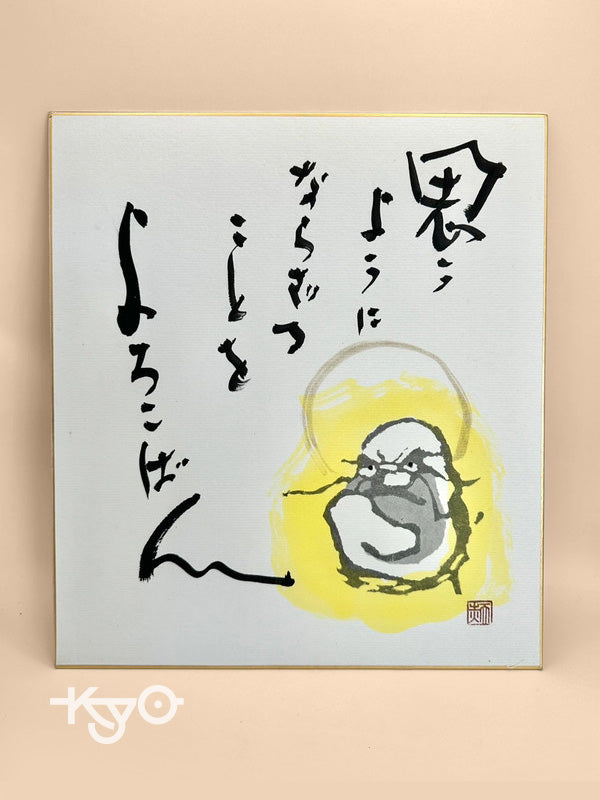 思う
ように
ならざる
ことを
よろこばん
Kyo